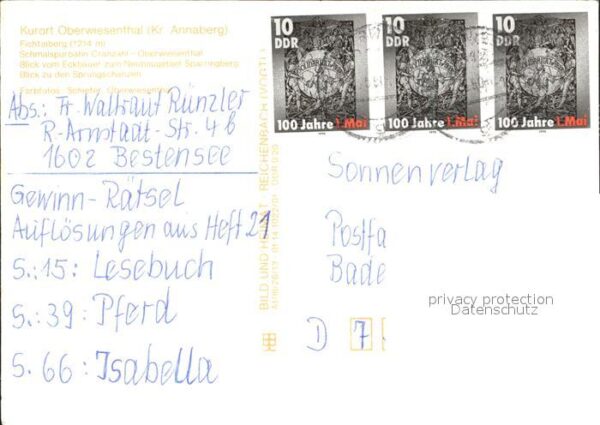 Kurort Oberwiesenthal (Kr. Annaberg)
Fichtelberg (1214 m)
Schmalspurbahn Cranzahl - Oberwiesenthal
Blick vom Eckbauer zum Neubaugebiet Sparringberg
Blick zu den Sprungschanzen
Farbfotos: Schiefer, Oberwiesenthal
Abs.: Fr. Waltraut Rünzler
R-Armstadt-Str. 4b
1602 Bestensee
Gewinn-Rätsel
Auflösungen aus Heft 21
S.: 15: Lesebuch
S.: 39: Pferd
S. 66: Isabella
BILD UND HEIMAT REICHENBACH (VOGTL)
10
DDR
100 Jahre 1. Mai
10
DDR
100 Jahre 1. Mai
10
DDR
100 Jahre 1. Mai
Sonnenverlag
Postfa
Bade
privacy protection
Datenschutz
D 7